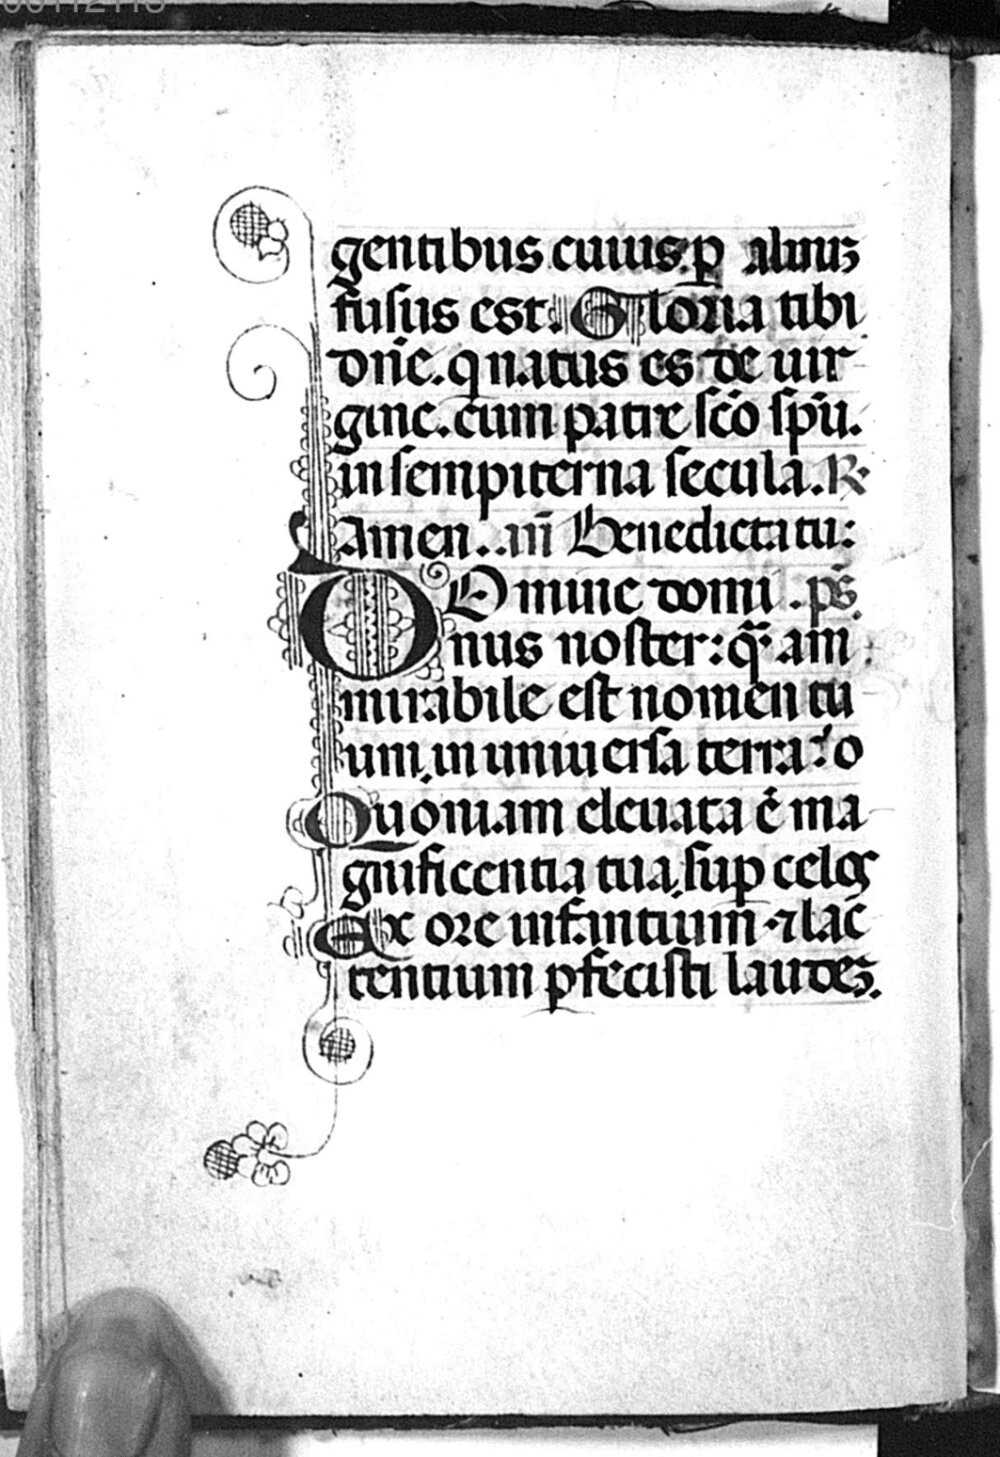 gentibus cuius p̱ aluuꝫ
fusus est. Gloria tibi
dn̄e. q natus es de uir
gine. cum patre sc̄o sp̄u.
in sempiterna secula. R.
Amen. . an̄ Benedicta tu:
DOmine domi . ps̄.
nus noster: qȝ am
mirabile est nomen tu
um. in uniuersa terra: o
Quoniam eleuata ē ma
gnificentia tua. sup̱ celos
Ex ore infantium ⁊ lac
tentium p̱fecisti laudeꝫ.